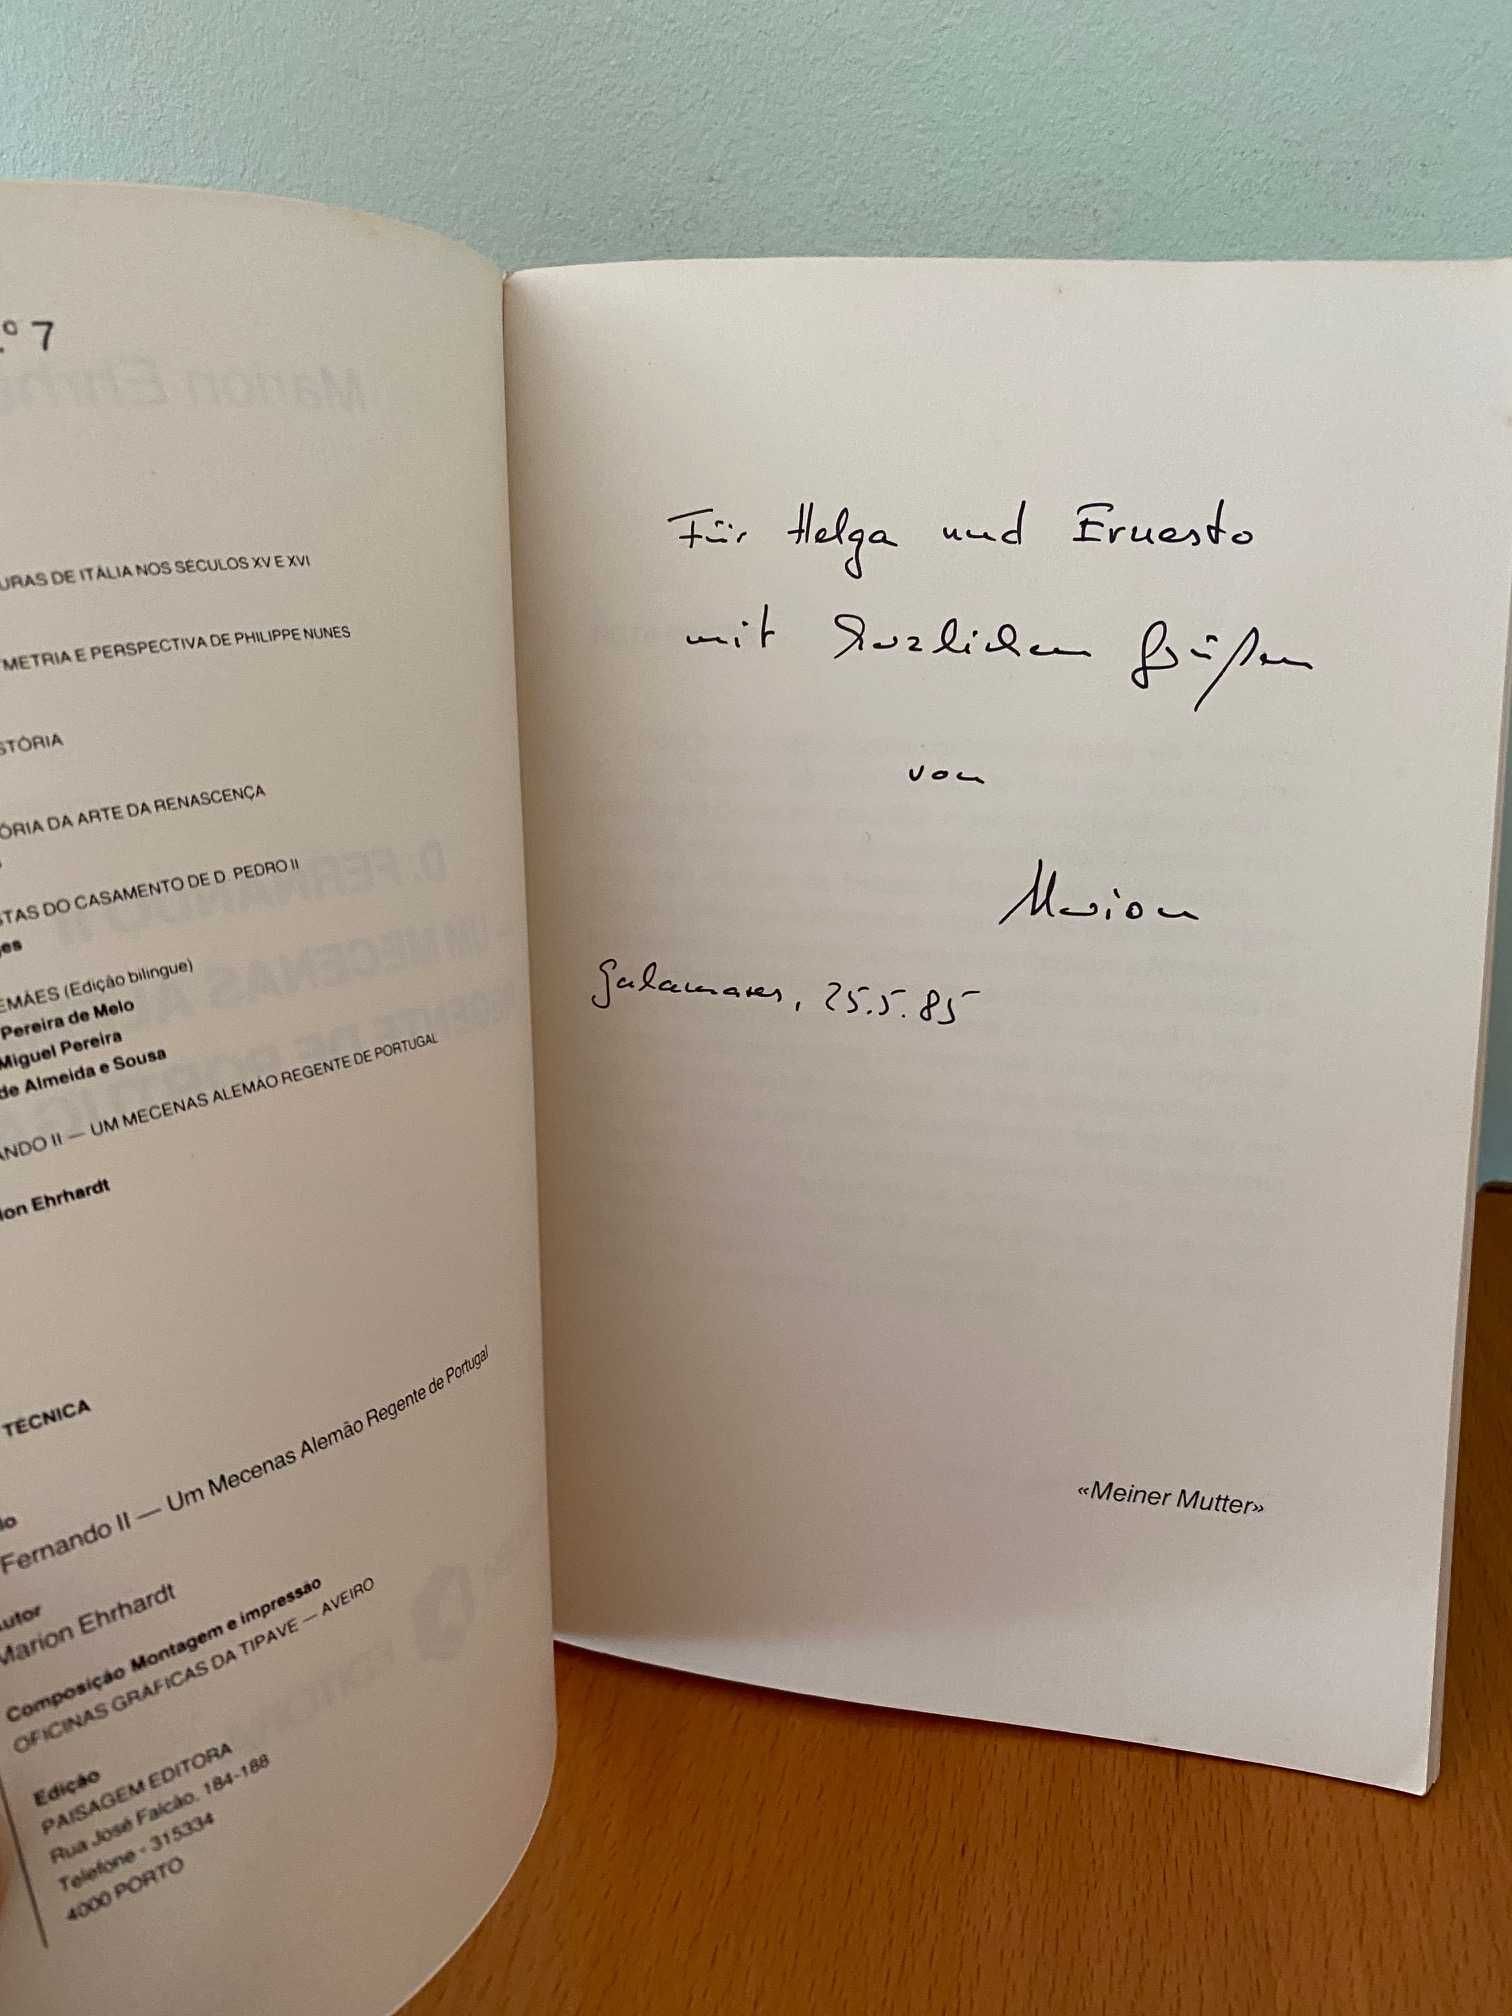 .º 7
URAS DE ITÁLIA NOS SÉCULOS XV E XVI
METRIA E PERSPECTIVA DE PHILIPPE NUNES
STÓRIA
ÓRIA DA ARTE DA RENASCENÇA
STAS DO CASAMENTO DE D. PEDRO II
ges
EMÃES (Edição bilingue)
Pereira de Melo
Miguel Pereira
de Almeida e Sousa
ANDO II — UM MECENAS ALEMÃO REGENTE DE PORTUGAL
ion Ehrhardt
TÉCNICA
lo
Fernando II — Um Mecenas Alemão Regente de Portugal
utor
Marion Ehrhardt
Composição Montagem e impressão
OFICINAS GRÁFICAS DA TIPAVE — AVEIRO
Edição
PAISAGEM EDITORA
Rua José Falcão, 184-188
Telefone - 315334
4000 PORTO
Für Helga und Ernesto
mit herzlichen Grüßen
von
Marion
Galamares, 25.5.85
«Meiner Mutter»